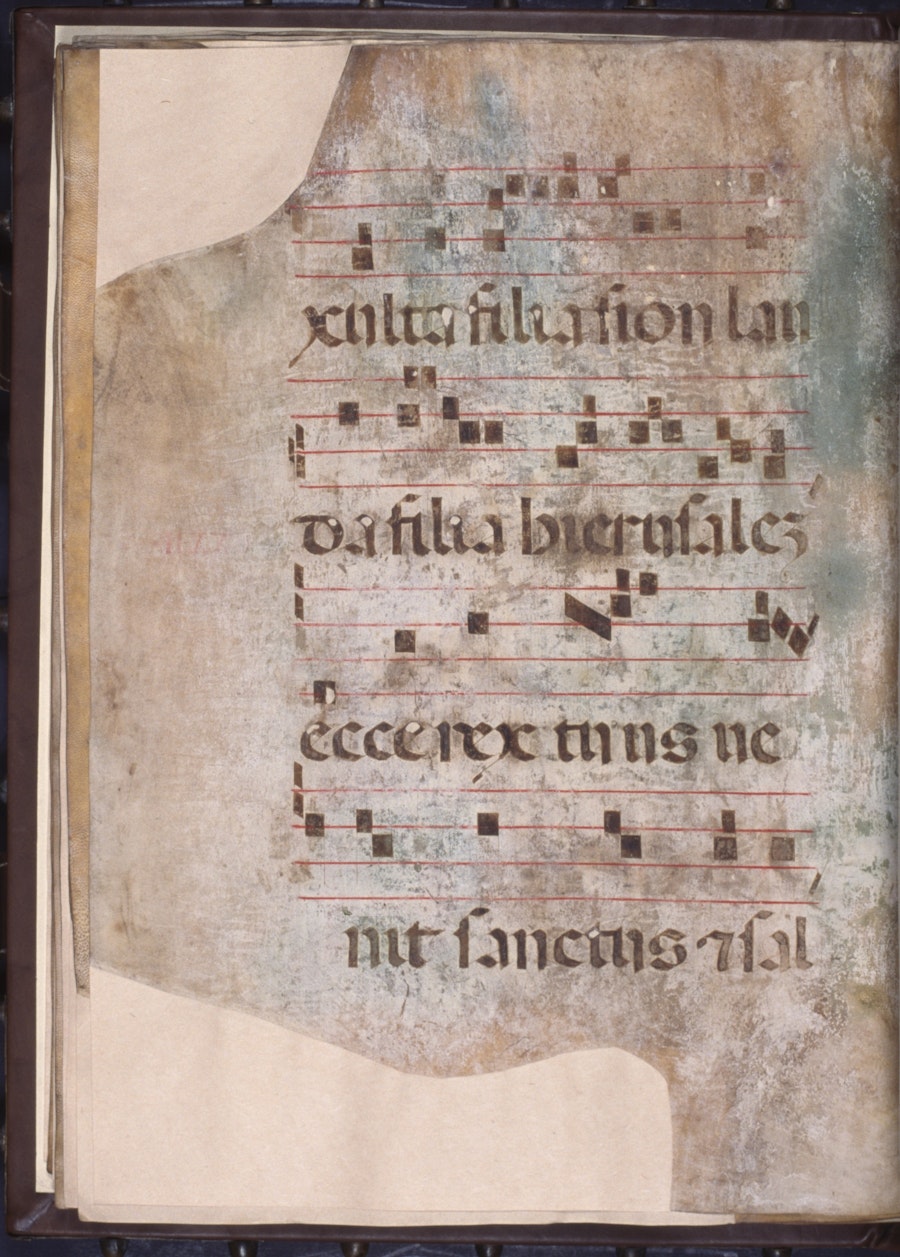 xulta filia sion lau
da filia hierusalez
ecce rex tuus ue
nit sanctus ⁊ sal